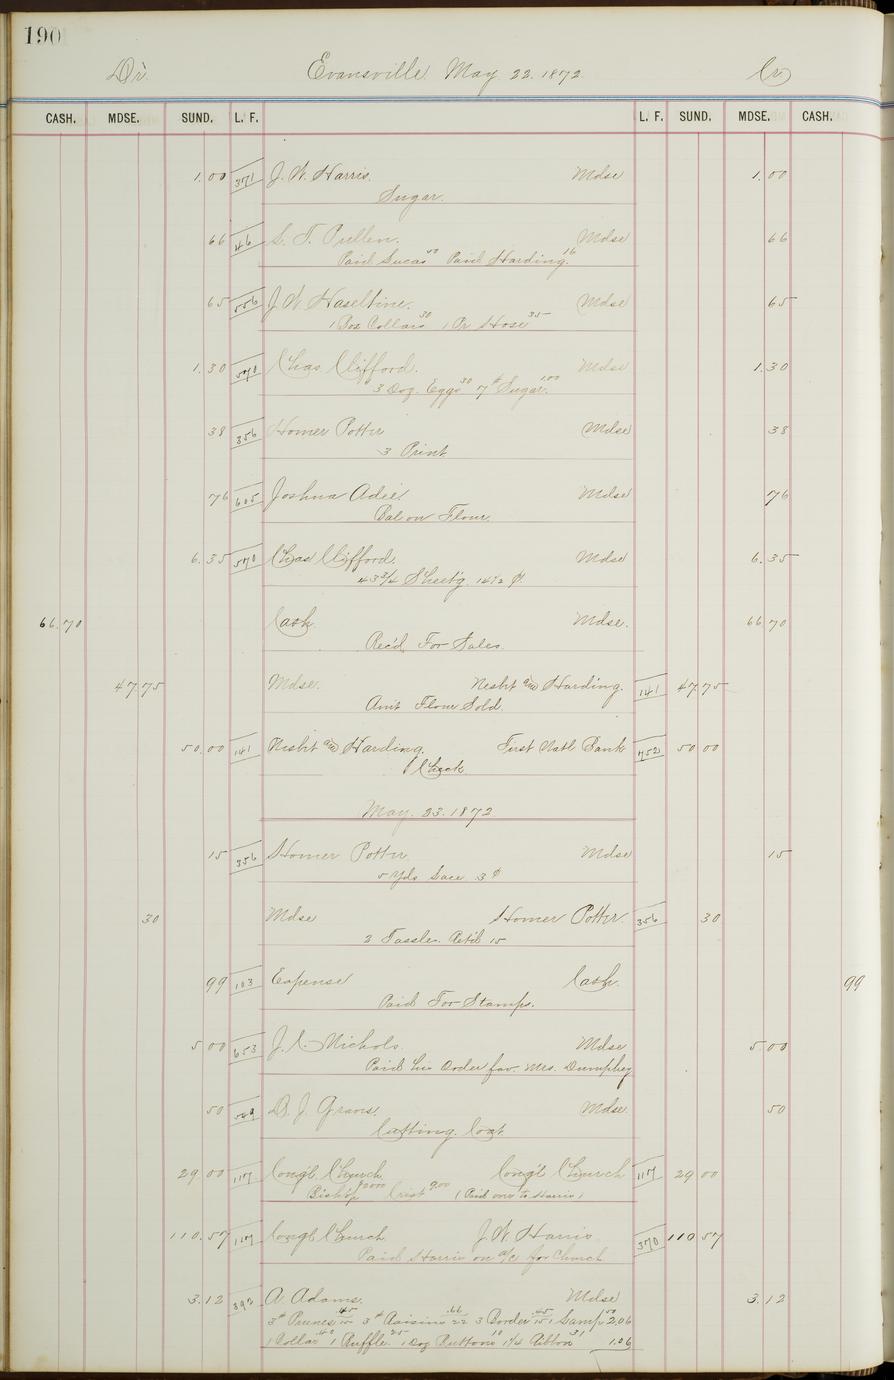 190
Dr. Evansville May 22. 1872 Cr
CASH. MDSE. SUND. L. F. L. F. SUND. MDSE. CASH.
1.00 371 J. W. Harris. Mdse 1.00
Sugar.
66 46 S. T. Pullen. Mdse 66
Paid Lucas 50 Paid Harding 16
65 556 J. W. Haseltine. Mdse 65
1 Box Collars 30 1 Pr Hose 35
1.30 570 Chas Clifford. Mdse 1.30
3 Doz. Eggs 30 7# Sugar. 1.00
38 356 Homer Potter Mdse 38
3 Print
76 605 Joshua Adie Mdse 76
Bal on Flour.
6.35 570 Chas Clifford. Mdse 6.35
43 3/4 Sheet'g. 14 1/2 ¢
66.70 Cash Mdse. 66 70
Rec'd For Sales.
47.75 Mdse. Nesbit and Harding. 141 47.75
Amt Flour Sold.
50.00 141 Nesbit and Harding. First Natl Bank 752 50 00
Check
May. 23. 1872
15 356 Homer Potter. Mdse 15
5 Yds Lace 3 ¢
30 Mdse Homer Potter. 356 30
2 Tassles. Ret'd 15
99 103 Expense Cash. 99
Paid For Stamps.
5 00 653 J. C. Nichols. Mdse 5.00
Paid his Order fav. Mrs. Dumphey
50 549 Mdse. 50
Cutting Coat.
29 00 117 Congl. Church. Congl Church 117 29 00
Bishop 20.00 Crist 9.00 (Paid over to Harris)
110.57 117 Congl Church J. W. Harris 370 110 57
Paid Harris on a/c for Church
3.12 392 A. Adams. Mdse 3.12
3# Prunes 15 .45 3# Raisins 22 .66 3 Border 15 .45 1 Lamp 50 2.06
1 Collar 40 1 Ruffle. 25 1 Doz Buttons 10 1 1/4 Ribbon 31 1.06